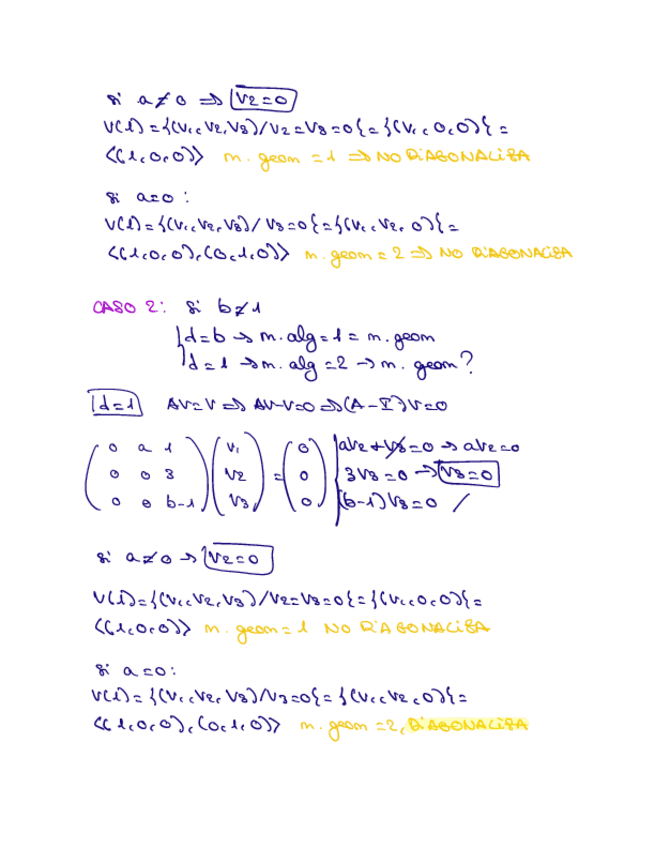 si a≠0 ⇒ V2=0
V(1)={(V1,V2,V3)/V2=V3=0}={(V1,0,0)}=
<(1,0,0)> m. geom = 1 ⇒ NO DIAGONALIZA
si a=0:
V(1)={(V1,V2,V3)/V3=0}={(V1,V2,0)}=
<(1,0,0),(0,1,0)> m. geom = 2 ⇒ NO DIAGONALIZA
CASO 2: si b≠1
d=b → m. alg=1 = m. geom
d=1 → m. alg =2 → m. geom?
d=1 AV=V ⇒ AV-V=0 ⇒ (A-I)V=0
0 a 1 V1 0 aV2+V3=0 → aV2=0
0 0 3 V2 = 0 3V3=0 → V3=0
0 0 b-1 V3 0 (b-1)V3=0 /
si a≠0 → V2=0
V(1)={(V1,V2,V3)/V2=V3=0}={(V1,0,0)}=
<(1,0,0)> m. geom=1 NO DIAGONALIZA
si a=0:
V(1)={(V1,V2,V3)/V3=0}={(V1,V2,0)}=
<(1,0,0),(0,1,0)> m. geom =2, DIAGONALIZA